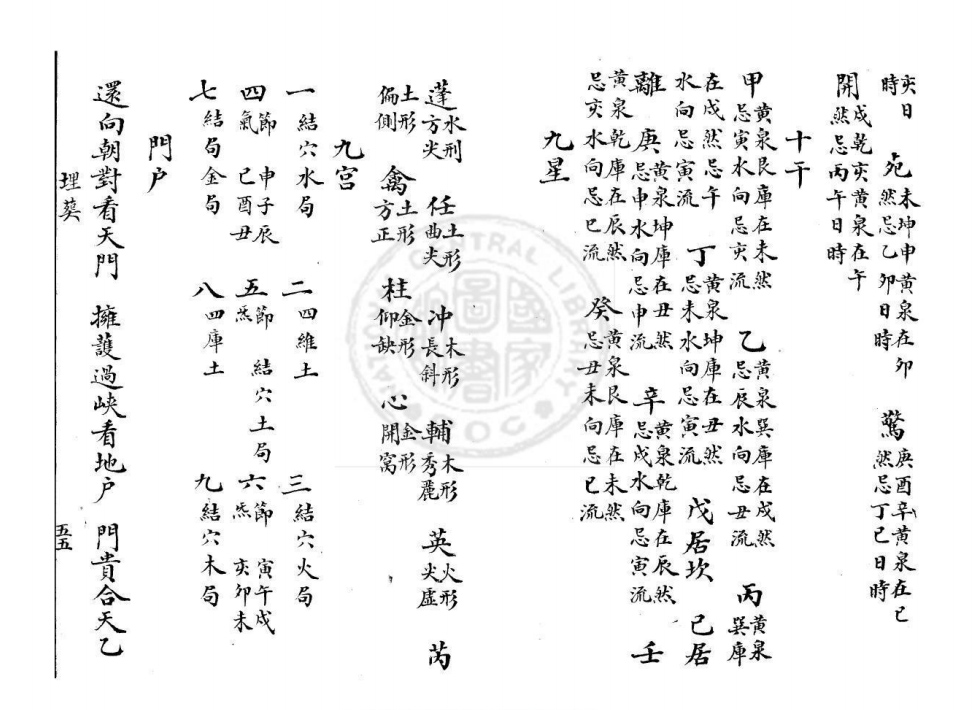 亥日時　死未坤申黃泉在卯然忌乙卯日時　驚庚酉辛黃泉在巳然忌丁巳日時
開戌乾亥黃泉在午然忌丙午日時
十干
甲黃泉艮庫在未然忌寅水向忌亥流　乙黃泉巽庫在戌然忌辰水向忌丑流　丙黃泉巽庫
在戌然忌午水向忌寅流　丁黃泉坤庫在丑然忌未水向忌寅流　戊居坎　己居
離　庚黃泉坤庫在丑然忌申水向忌申流　辛黃泉乾庫在辰然忌戌水向忌寅流　壬
黃泉乾庫在辰然忌亥水向忌巳流　癸黃泉艮庫在未然忌丑未向忌巳流
九星
蓬水刑方尖　任土形曲尖　冲木形長斜　輔木形秀麗　英火形尖虛　芮
土形偏側　禽土形方正　柱金形仰缺　心金形開窩
九宮
一結穴水局　二四維土　三結穴火局
四節氣　申子辰巳酉丑　五節炁　結穴土局　六節炁　寅午戌亥卯未
七結局金局　八四庫土　九結穴木局
門户
還向朝對看天門　擁護過峽看地户　門貴合天乙
埋葬　五五